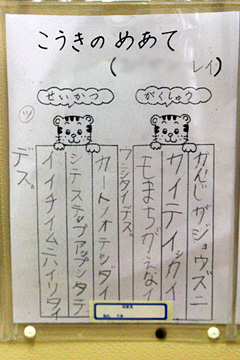 こうきの めあて
( レイ)
がくしゅう
かんじがジョウズニ
サイテイ カイ
モまちがえない
ヨウニシタイデス。
せいかつ
カートノオテツダイ
シテステップアップシタラ
イイチイムニハイリタイ
デス。